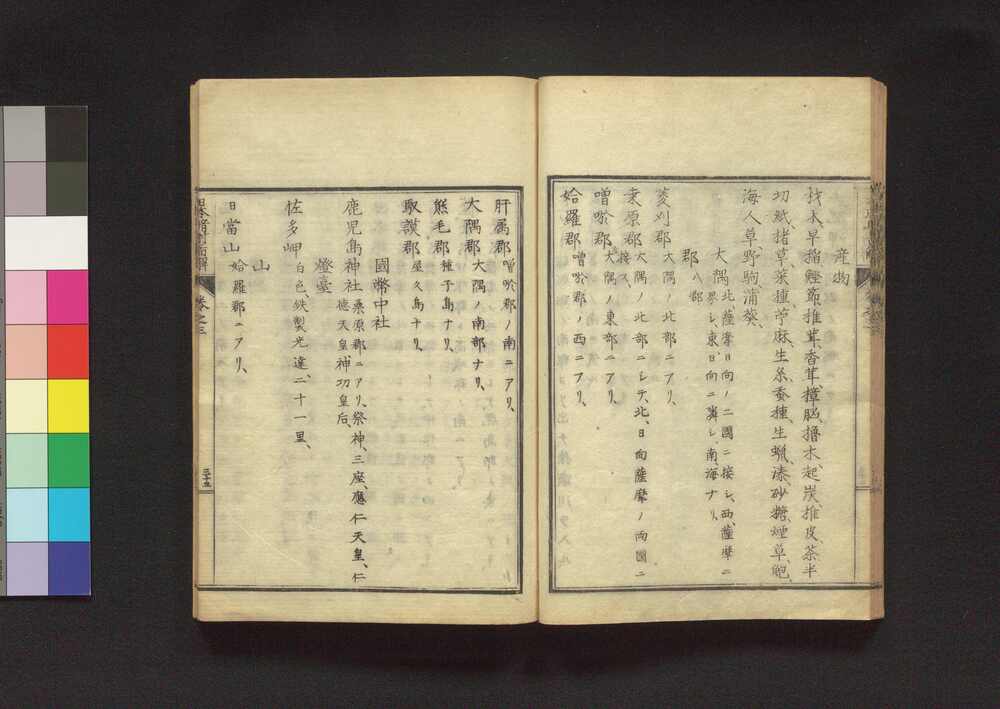 産物
材木、旱稲、鰹節、椎茸、香茸、樟脳、擼木、起炭、椎皮、茶、半
切紙、楮草、菜種、苧麻、生糸、蚕種、生蝋、漆、砂糖、煙草、鮑、
海人草、野駒、蒲葵、
大隅 北、薩摩日向ノ二國ニ接シ、西、薩摩ニ
界シ、東、日向ニ
シ、南、海ナリ、
郡 八郡
菱刈郡 大隅ノ北部ニアリ、
桒原郡 大隅ノ北部ニシテ、北、日向薩摩ノ両國ニ
接ス、
囎唹郡 大隅ノ東部ニアリ、
姶羅郡 囎唹郡ノ西ニアリ、
肝属郡 囎唹郡ノ南ニアリ、
大隅郡 大隅ノ南部ナリ、
熊毛郡 種子島ナリ、
馭謨郡 屋久島ナリ、
國幣中社
鹿児島神社 桑原郡ニアリ、祭神、三座、應仁天皇、仁
徳天皇、神功皇后、
燈臺
佐多岬 白色、鉄製、光達、二十一里、
山
日當山 姶羅郡ニアリ、
卷之三
三十五